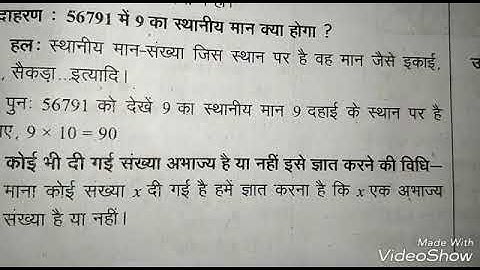 दाहरण : 56791 में 9 का स्थानीय मान क्या होगा ?
हल: स्थानीय मान-संख्या जिस स्थान पर है वह मान जैसे इकाई,
, सैकड़ा...इत्यादि।
पुन: 56791 को देखें 9 का स्थानीय मान 9 दहाई के स्थान पर है
ाए, 9 × 10 = 90
कोई भी दी गई संख्या अभाज्य है या नहीं इसे ज्ञात करने की विधि–
माना कोई संख्या x दी गई है हमें ज्ञात करना है कि x एक अभाज्य
संख्या है या नहीं।
Made With
VideoShow